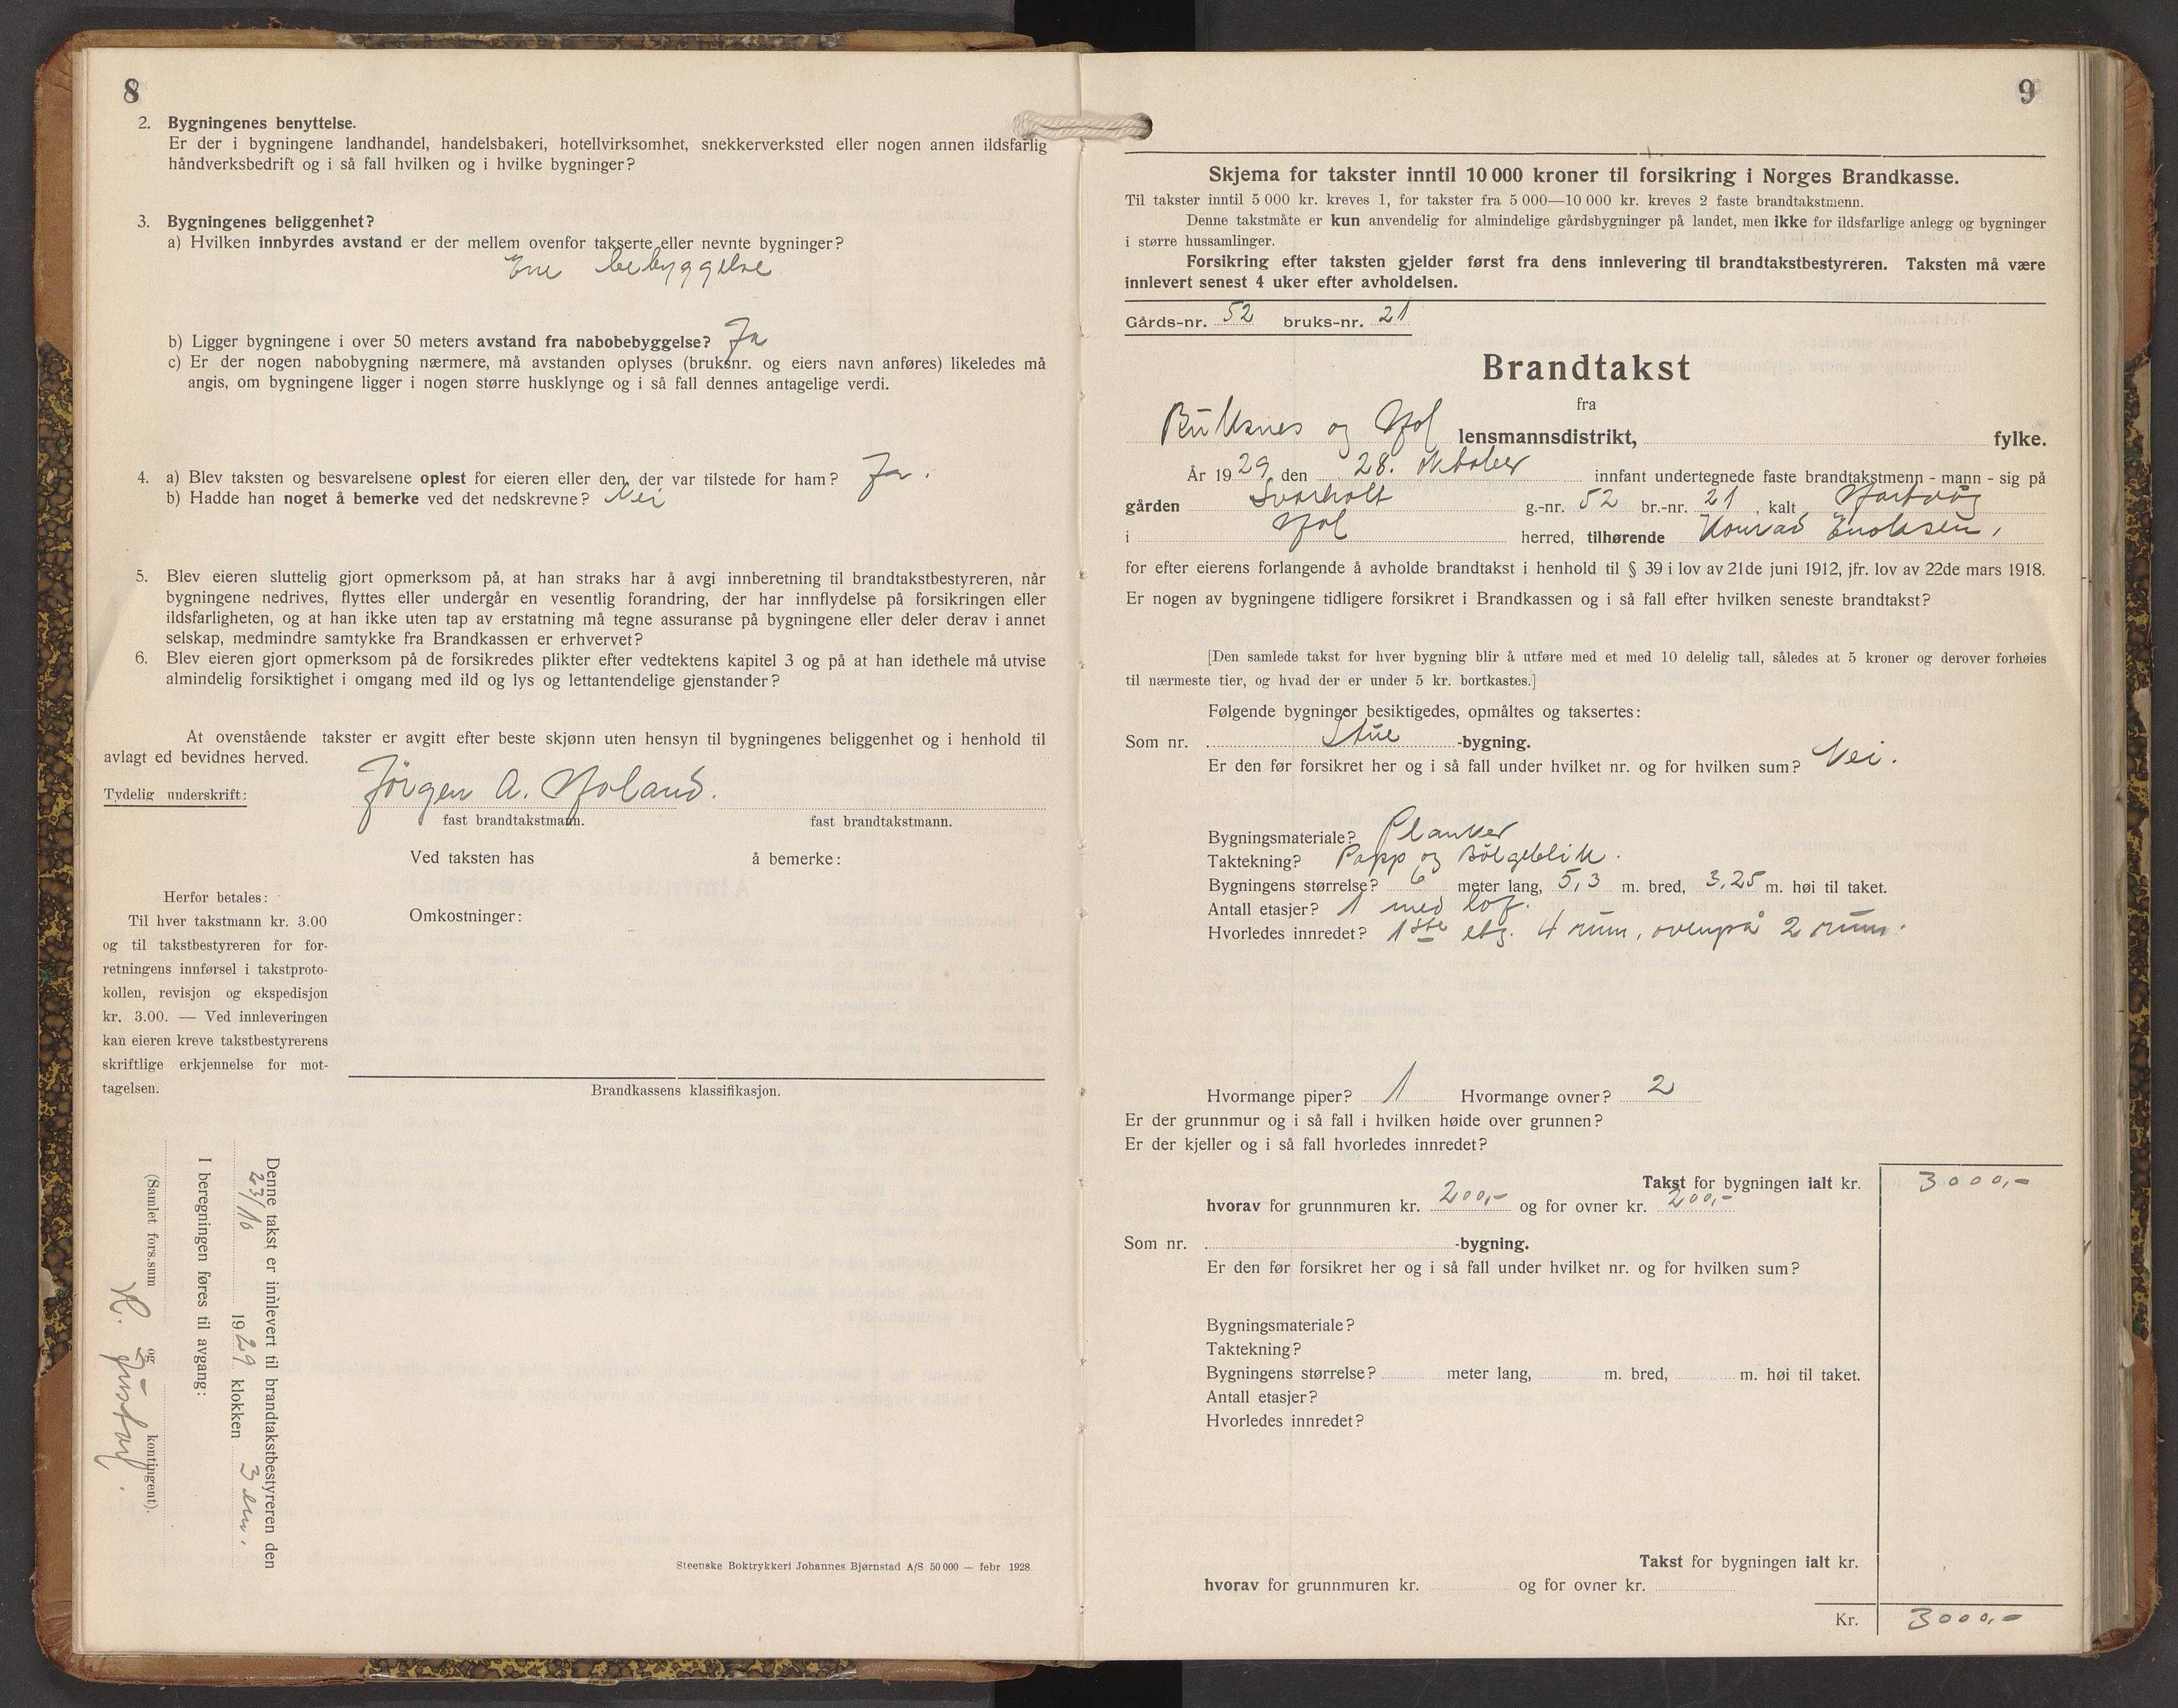 8
2. Bygningenes benyttelse.
Er der i bygningene landhandel, handelsbakeri, hotellvirksomhet, snekkerverksted eller nogen annen ildsfarlig
håndverksbedrift og i så fall hvilken og i hvilke bygninger?
3. Bygningenes beliggenhet?
a) Hvilken innbyrdes avstand er der mellem ovenfor takserte eller nevnte bygninger?
Ene bebyggelse
b) Ligger bygningene i over 50 meters avstand fra nabobebyggelse? Ja
c) Er der nogen nabobygning nærmere, må avstanden oplyses (bruksnr. og eiers navn anføres) likeledes må
angis, om bygningene ligger i nogen større husklynge og i så fall dennes antagelige verdi.
4. a) Blev taksten og besvarelsene oplest for eieren eller den, der var tilstede for ham? Ja.
b) Hadde han noget å bemerke ved det nedskrevne? Nei
5. Blev eieren sluttelig gjort opmerksom på, at han straks har å avgi innberetning til brandtakstbestyreren, når
bygningene nedrives, flyttes eller undergår en vesentlig forandring, der har innflydelse på forsikringen eller
ildsfarligheten, og at han ikke uten tap av erstatning må tegne assuranse på bygningene eller deler derav i annet
selskap, medmindre samtykke fra Brandkassen er erhvervet?
6. Blev eieren gjort opmerksom på de forsikredes plikter efter vedtektens kapitel 3 og på at han idethele må utvise
almindelig forsiktighet i omgang med ild og lys og lettantendelige gjenstander?
At ovenstående takster er avgitt efter beste skjønn uten hensyn til bygningenes beliggenhet og i henhold til
avlagt ed bevidnes herved.
Tydelig underskrift: Jörgen A. Holand.
fast brandtakstmann. fast brandtakstmann.
Ved taksten has å bemerke:
Omkostninger:
Herfor betales:
Til hver takstmann kr. 3.00
og til takstbestyreren for for-
retningens innførsel i takstproto-
kollen, revisjon og ekspedisjon
kr. 3.00. — Ved innleveringen
kan eieren kreve takstbestyrerens
skriftlige erkjennelse for mot-
tagelsen.
Brandkassens klassifikasjon.
Denne takst er innlevert til brandtakstbestyreren den
23/10 1929 klokken 3 em.
I beregningen føres til avgang:
(Samlet fors.sum og kontingent).
Steenske Boktrykkeri Johannes Bjørnstad A/S 50 000 — febr 1928.
9
Skjema for takster inntil 10 000 kroner til forsikring i Norges Brandkasse.
Til takster inntil 5 000 kr. kreves 1, for takster fra 5 000—10 000 kr. kreves 2 faste brandtakstmenn.
Denne takstmåte er kun anvendelig for almindelige gårdsbygninger på landet, men ikke for ildsfarlige anlegg og bygninger
i større hussamlinger.
Forsikring efter taksten gjelder først fra dens innlevering til brandtakstbestyreren. Taksten må være
innlevert senest 4 uker efter avholdelsen.
Gårds-nr. 52 bruks-nr. 21
Brandtakst
fra
Buksnes og Hol lensmannsdistrikt, fylke.
År 1929, den 28. oktober innfant undertegnede faste brandtakstmenn - mann - sig på
gården Svarholt g.-nr. 52 br.-nr. 21, kalt
i Hol herred, tilhørende Konrad Enoksen,
for efter eierens forlangende å avholde brandtakst i henhold til § 39 i lov av 21de juni 1912, jfr. lov av 22de mars 1918.
Er nogen av bygningene tidligere forsikret i Brandkassen og i så fall efter hvilken seneste brandtakst?
[Den samlede takst for hver bygning blir å utføre med et med 10 delelig tall, således at 5 kroner og derover forhøies
til nærmeste tier, og hvad der er under 5 kr. bortkastes.]
Følgende bygninger besiktigedes, opmåltes og taksertes:
Som nr. Stue -bygning.
Er den før forsikret her og i så fall under hvilket nr. og for hvilken sum? Nei.
Bygningsmateriale? Planker
Taktekning? Papp og Bölgeblik.
Bygningens størrelse? 6 meter lang, 5,3 m. bred, 3,25 m. høi til taket.
Antall etasjer? 1 med loft.
Hvorledes innredet? 1ste etg. 4 rum, ovenpå 2 rum.
Hvormange piper? 1 Hvormange ovner? 2
Er der grunnmur og i så fall i hvilken høide over grunnen?
Er der kjeller og i så fall hvorledes innredet?
Takst for bygningen ialt kr. 3000,-
hvorav for grunnmuren kr. 200,- og for ovner kr. 200,-
Som nr. -bygning.
Er den før forsikret her og i så fall under hvilket nr. og for hvilken sum?
Bygningsmateriale?
Taktekning?
Bygningens størrelse? meter lang, m. bred, m. høi til taket.
Antall etasjer?
Hvorledes innredet?
Takst for bygningen ialt kr.
hvorav for grunnmuren kr. og for ovner kr.
Kr. 3000,-